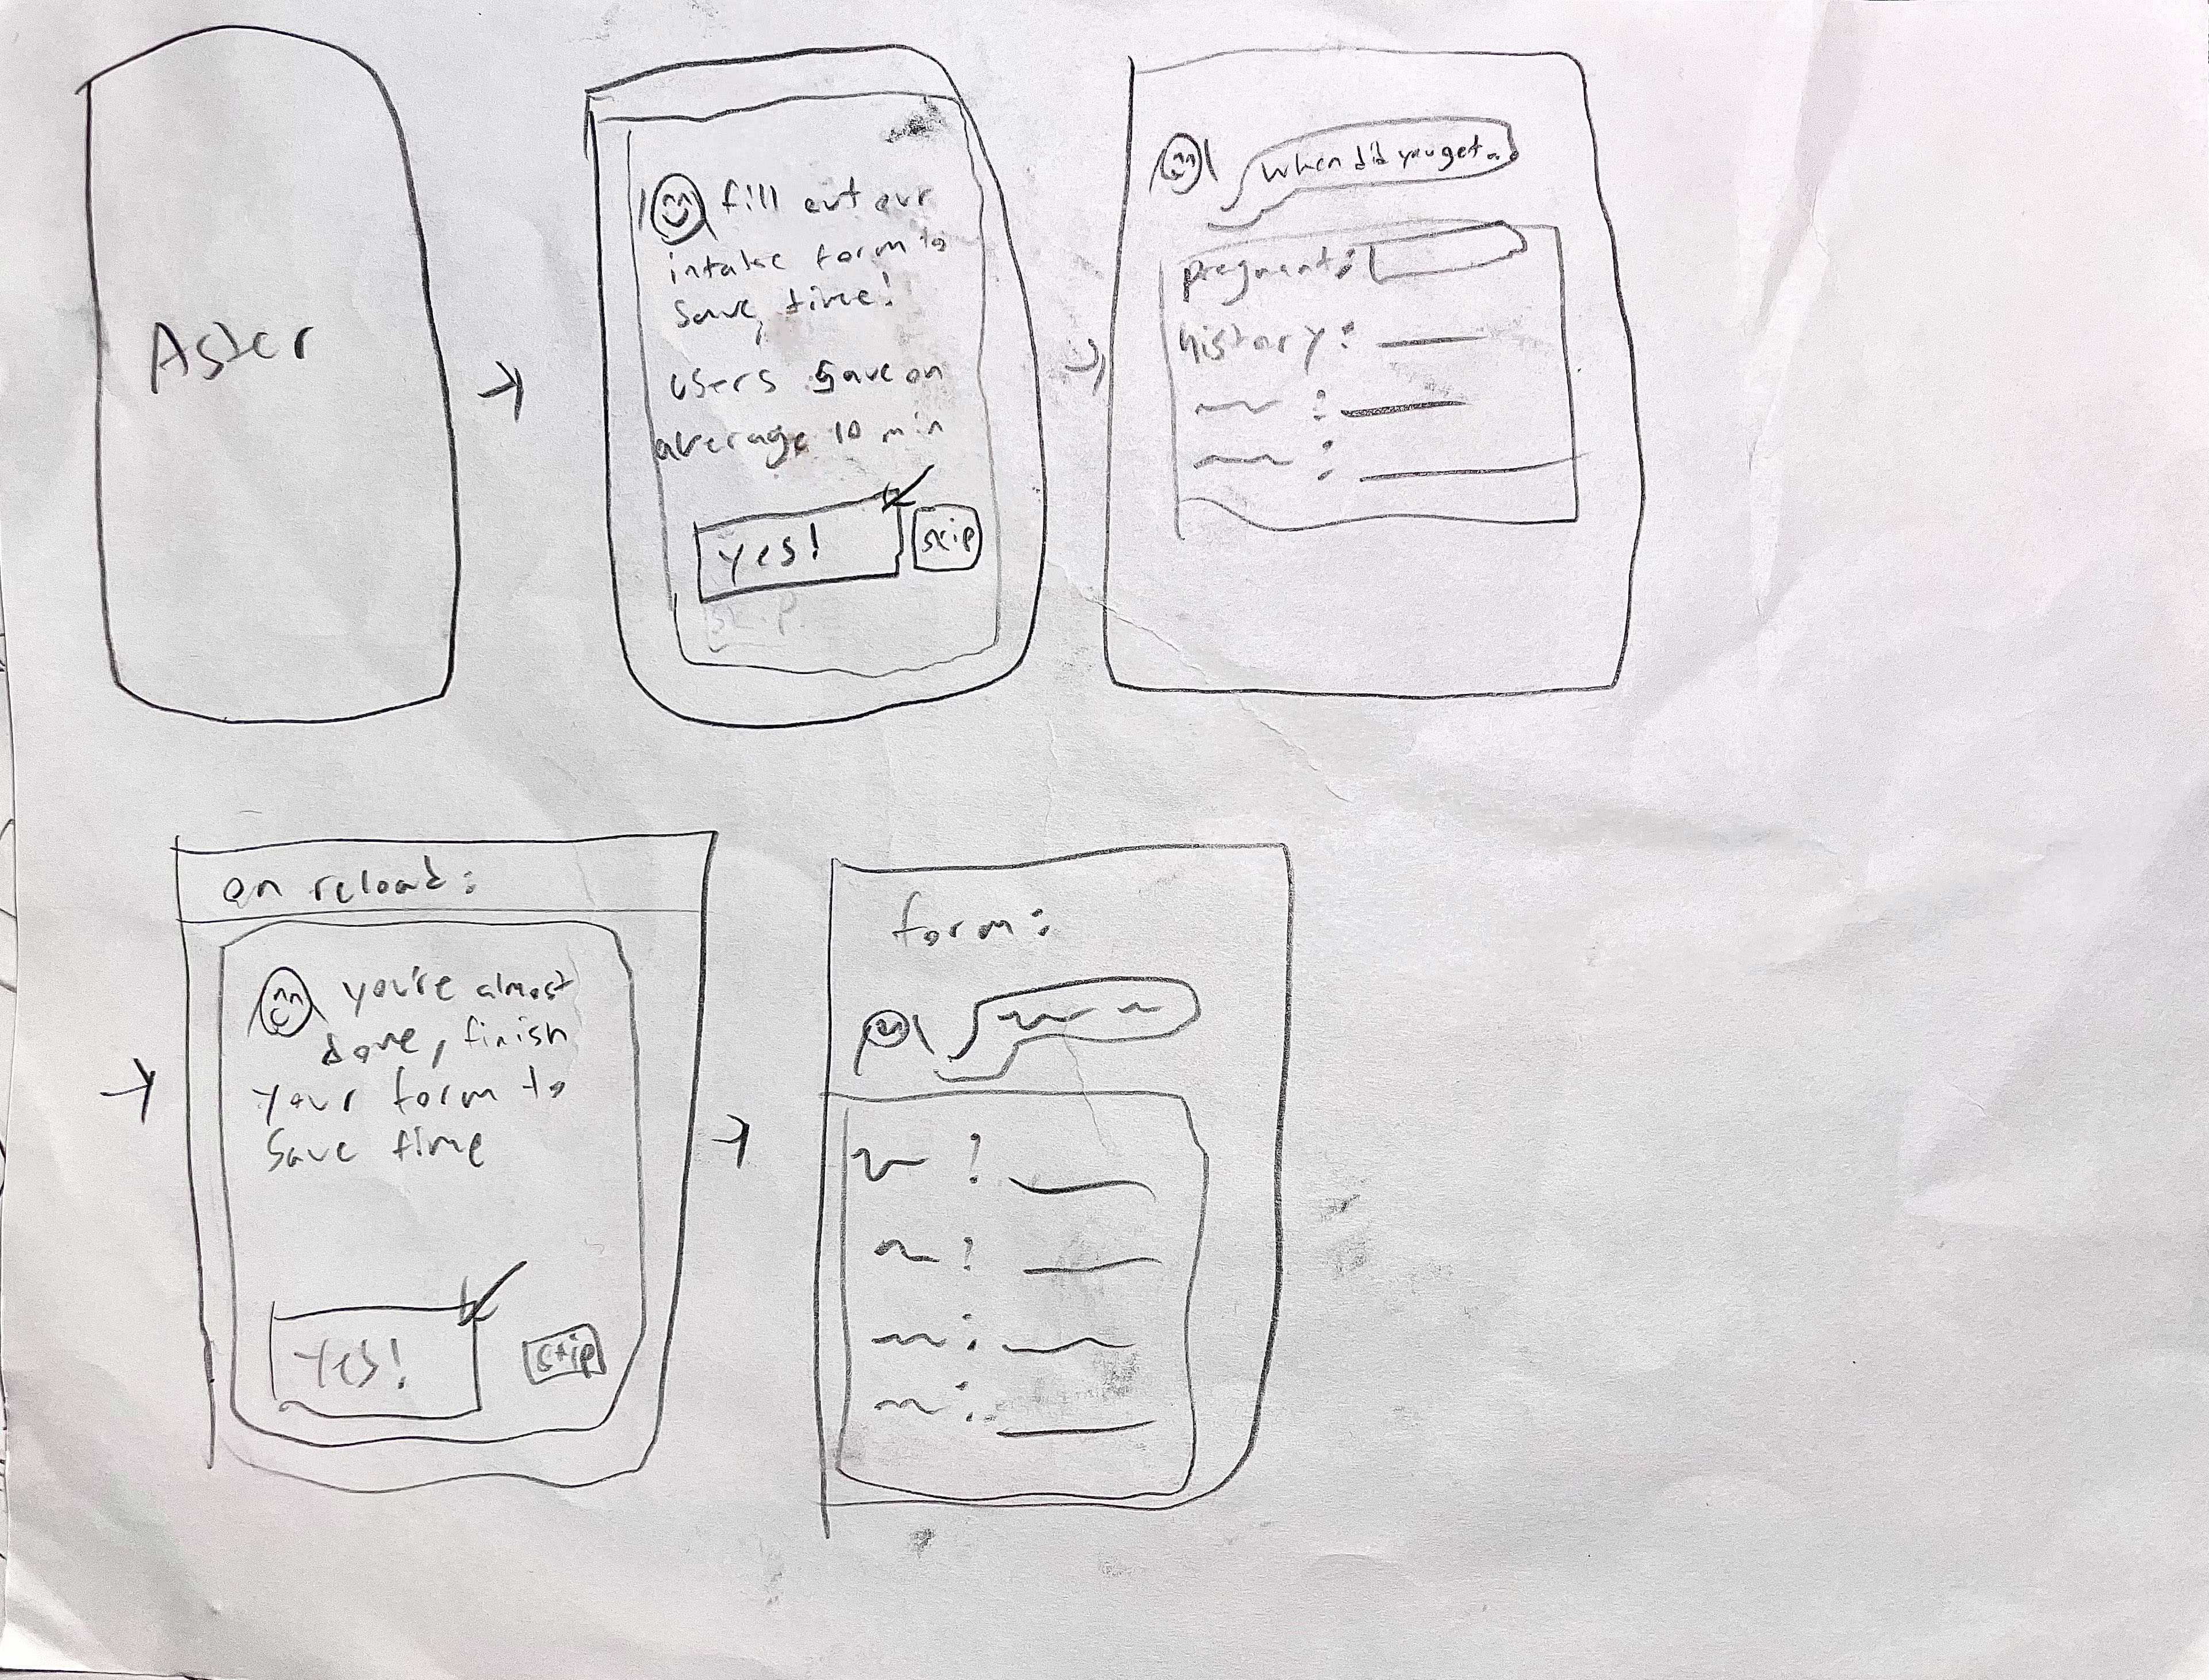 Aster
fill out our
intake form to
save time!
users save on
average 10 min
yes!
skip
skip
when did you get
pregnant:
history:
:
:
on reload:
you're almost
done, finish
your form to
save time
Yes!
skip
form: